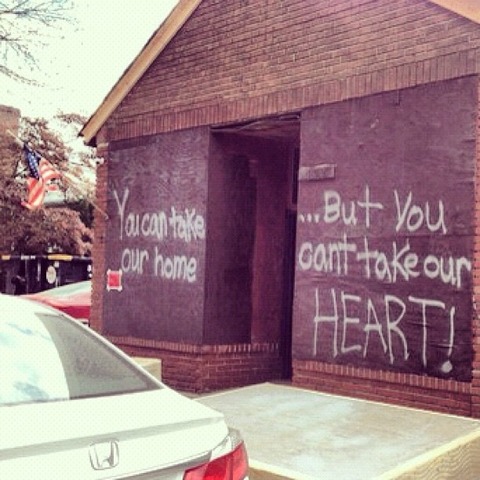 You can take
our home
...But You
can't take our
HEART!